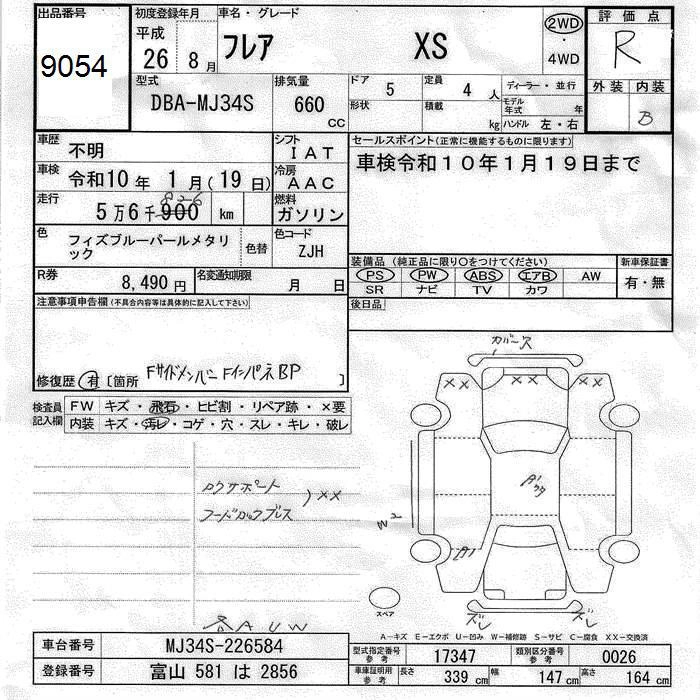 出品番号
9054
初度登録年月
平成
26 年 8 月
車名・グレード
フレア XS
2WD
・
4WD
評価点
R
外装 内装
B
型式
DBA-MJ34S
排気量
660
CC
ドア
5
定員
4 人
形状
積載
kg
ディーラー・並行
モデル年式
年
ハンドル 左・右
車歴
不明
シフト
IAT
車検
令和10 年 1 月 ( 19 日)
冷房
AAC
走行
5 万 6 千 900 km
826
燃料
ガソリン
色
フィズブルーパールメタリック
色替
色コード
ZJH
R券
8,490 円
名変通知期限
月 日
セールスポイント(正常に機能するものに限ります)
車検令和10年1月19日まで
装備品 (純正品に限り〇をつけてください)
新車保証書
PS PW ABS エアB AW
SR ナビ TV カワ
有・無
後日品
注意事項申告欄(不具合内容等は具体的に記入して下さい)
修復歴 有 〔箇所 Fサイドメンバー FインパネBP 〕
検査員記入欄
FW キズ・飛石・ヒビ割・リペア跡・×要
内装 キズ・汚レ・コゲ・穴・スレ・キレ・破レ
コアサポート
フードロックブレス
)××
各 A U W
カバー欠
×× ×× ××
スペア
ズレ ズレ
A-キズ E-エクボ U-凹み W-補修跡 S-サビ C-腐食 XX-交換済
車台番号
MJ34S-226584
登録番号
富山 581 は 2856
型式指定番号
参考
17347
類別区分番号
参考
0026
車庫証明用
参考
長さ
339 cm
幅
147 cm
高さ
164 cm